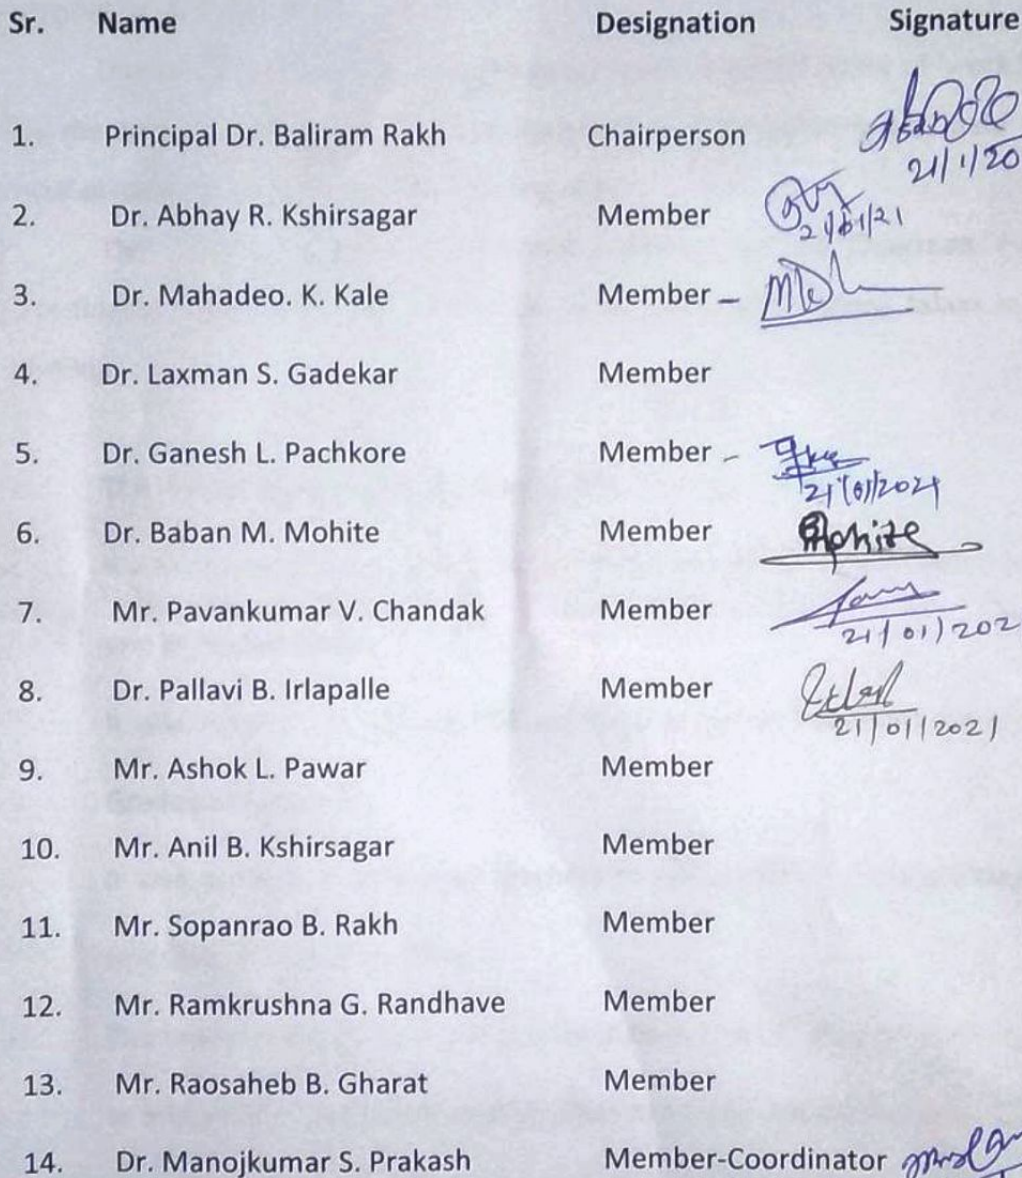 Sr. Name Designation Signature
1. Principal Dr. Baliram Rakh Chairperson
21/1/20
2. Dr. Abhay R. Kshirsagar Member
21/01/21
3. Dr. Mahadeo. K. Kale Member –
4. Dr. Laxman S. Gadekar Member
5. Dr. Ganesh L. Pachkore Member –
21/01/2021
6. Dr. Baban M. Mohite Member Bmohite
7. Mr. Pavankumar V. Chandak Member
21/01/202
8. Dr. Pallavi B. Irlapalle Member
21/01/2021
9. Mr. Ashok L. Pawar Member
10. Mr. Anil B. Kshirsagar Member
11. Mr. Sopanrao B. Rakh Member
12. Mr. Ramkrushna G. Randhave Member
13. Mr. Raosaheb B. Gharat Member
14. Dr. Manojkumar S. Prakash Member-Coordinator